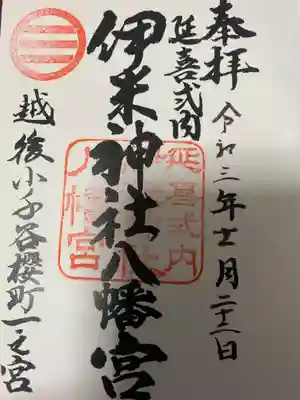 奉拝
令和三年十一月二十三日
延喜式内
伊米神社八幡宮
延喜式内
八幡宮
越後小千谷桜町一之宮